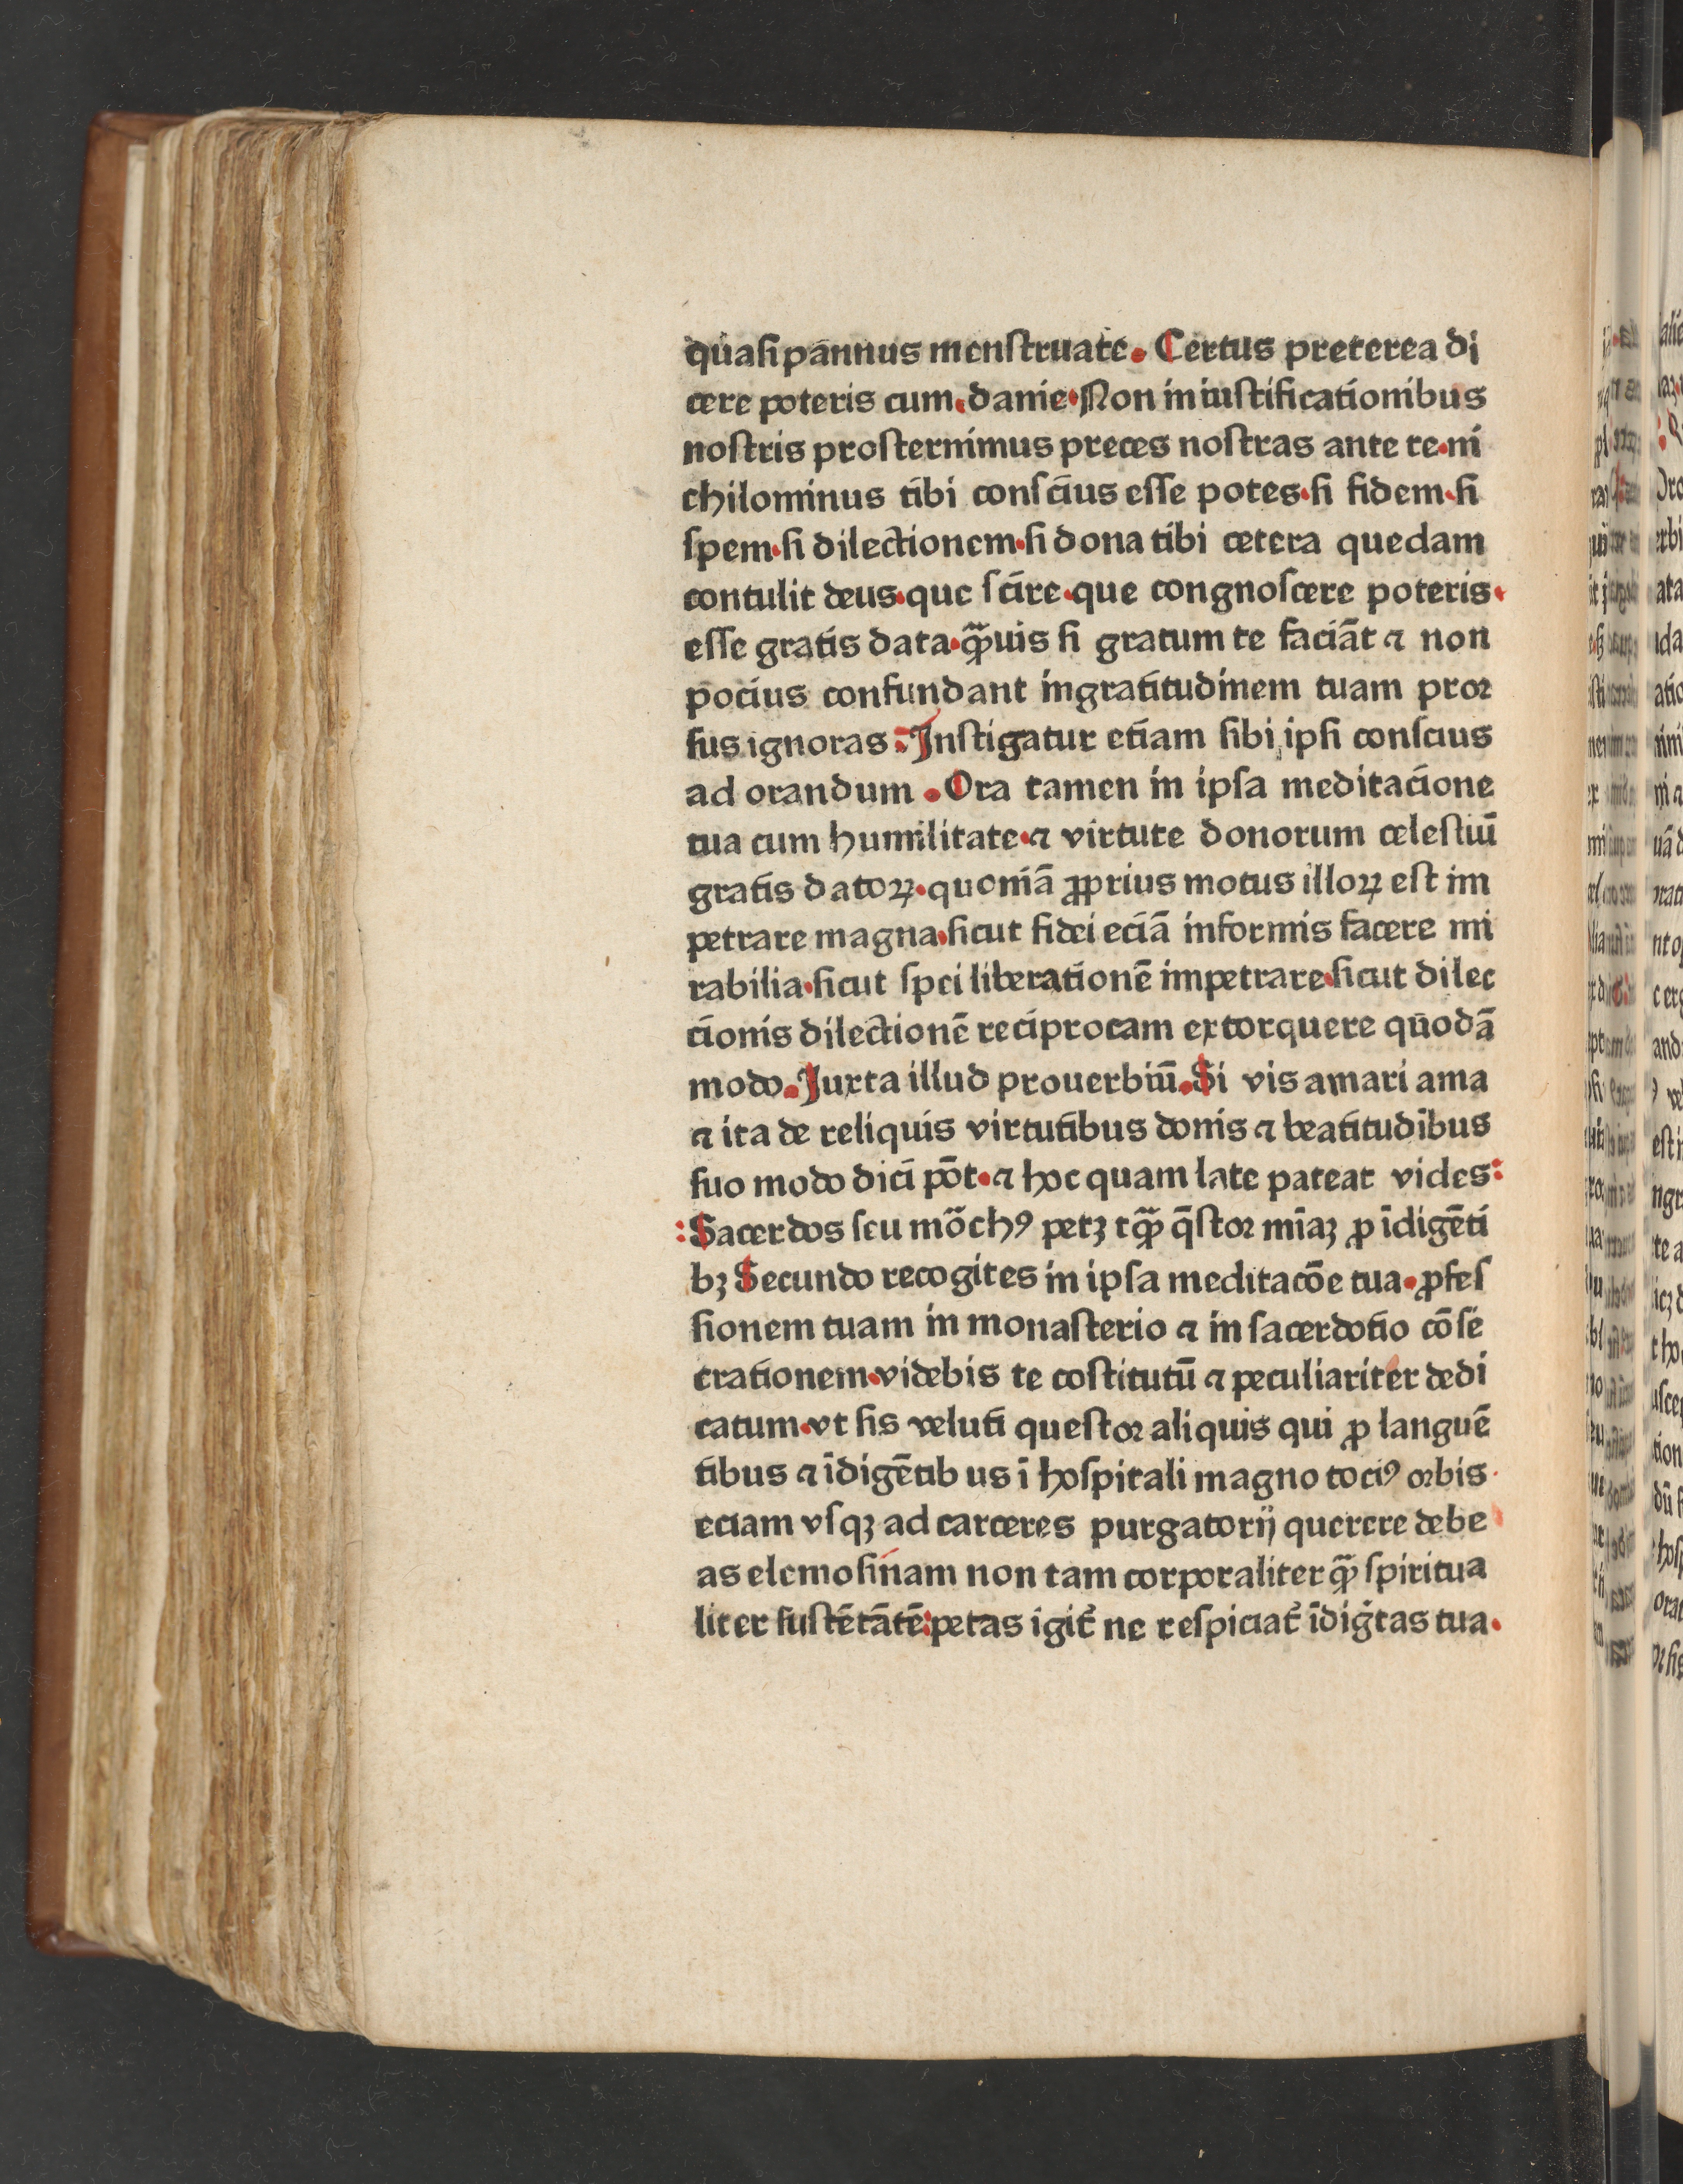 quasi pannus menstruate. Certus preterea di
cere poteris cum. danie. Non in iustificationibus
nostris prosternimus preces nostras ante te. ni
chilominus tibi conscius esse potes. si fidem. si
spem. si dilectionem. si dona tibi cetera quedam
contulit deus. que scire. que congnoscere poteris.
esse gratis data. qͣ̄uis si gratum te faciāt ⁊ non
pocius confundant ingratitudinem tuam pror
sus ignoras. Instigatur etiam sibi ipsi conscius
ad orandum. Ora tamen in ipsa meditacione
tua cum humilitate. ⁊ virtute donorum celestiū
gratis datoꝝ. quoniā ꝓprius motus illoꝝ est im
petrare magna. sicut fidei eciā informis facere mi
rabilia. sicut spei liberationē impetrare. sicut dilec
cionis dilectionē reciprocam extorquere quodā
modo. Juxta illud prouerbiū. Si vis amari ama
⁊ ita de reliquis virtutibus donis ⁊ beatitudibus
suo modo dici pōt. ⁊ hoc quam late pateat vides:
: Sacerdos seu mōchꝯ petꝫ tqͣ̄ q̄stor mīaꝫ ꝓ īdigēti
bꝫ Secundo recogites in ipsa meditacōe tua. ꝓfes
sionem tuam in monasterio ⁊ in sacerdotio cōse
crationem. videbis te costitutū ⁊ peculiariter dedi
catum. vt sis veluti questor aliquis qui ꝓ languē
tibus ⁊ īdigētib us ī hospitali magno tociꝯ orbis
eciam vsqꝫ ad carceres purgatorij querere debe
as elemosinam non tam corporaliter qͣ̄ spiritua
liter sustētātē: petas igit̄ ne respiciat̄ īdiḡtas tua.